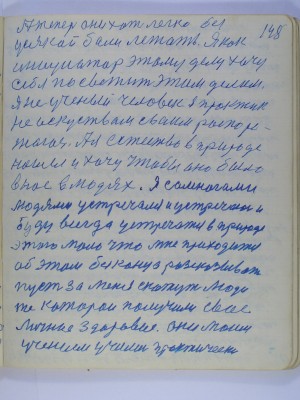 148
А теперь они хотят легко без
усякой боли летать. Я как
инициатор этому делу хочу
себя посвятить этим делам.
Я не ученый человек я практик
не искуством своим распоре-
А я естество в природе
нашел и хочу чтобы оно было
в нас в людях. Я со многими
людями устречался и устречаюсь и
буду всегда устречатся в природе
этого мало что мне приходится
об этом без конца рассказывать
пусть за меня скажут люди
те которые получили свое
личное здоровие. они моим
учением учились практически